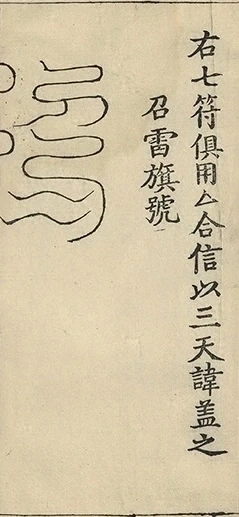 右七符俱用亼合信以三天諱盖之
召雷旗號